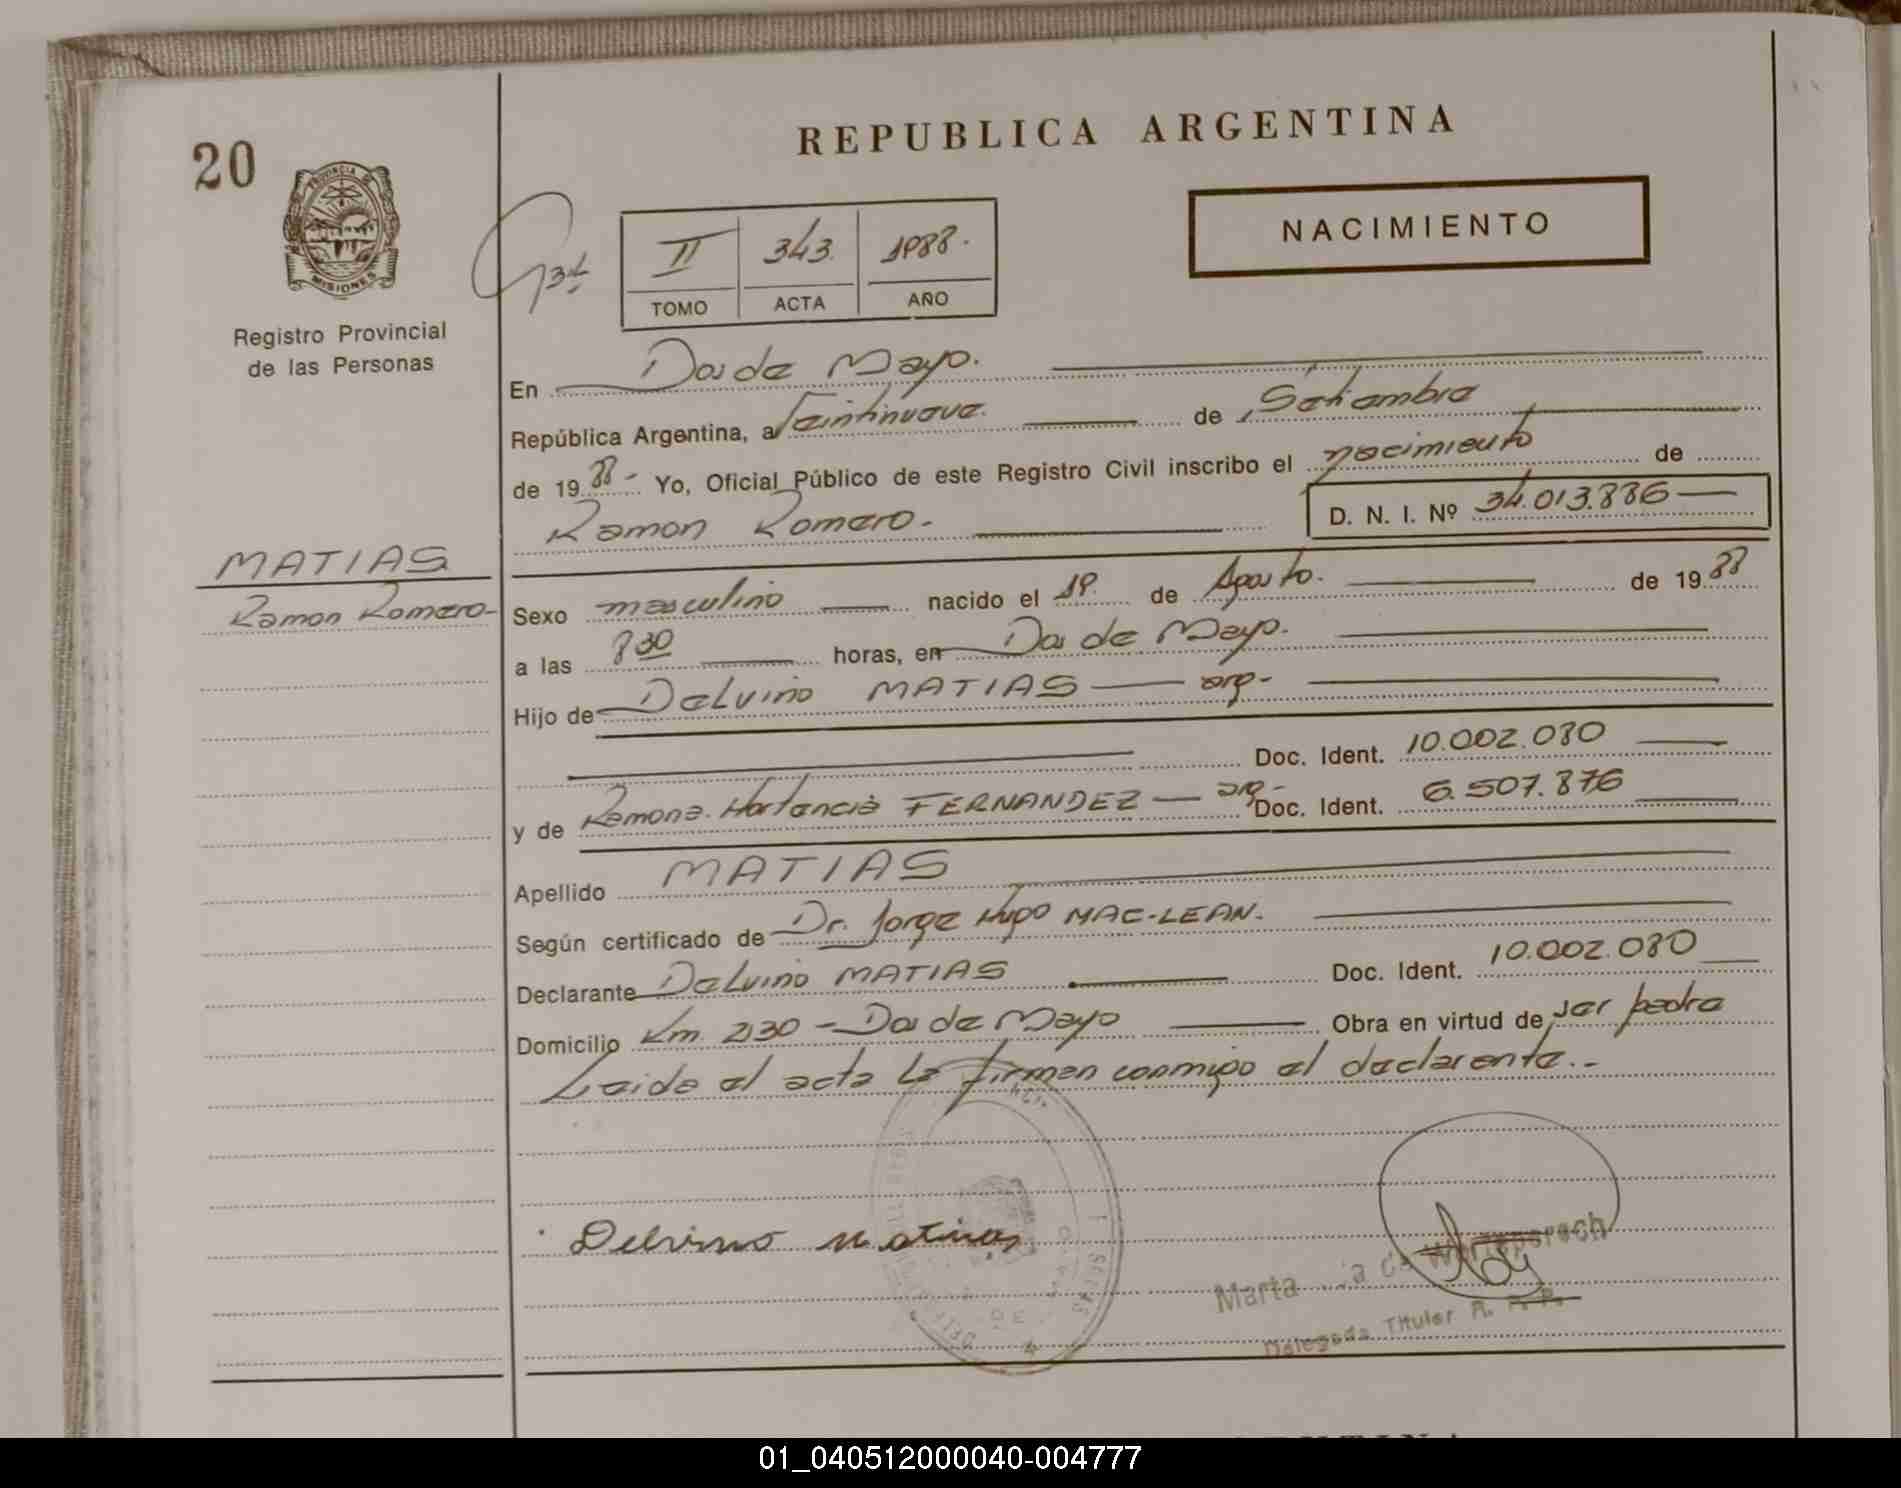 REPUBLICA ARGENTINA
20
PROVINCIA DE
MISIONES
NACIMIENTO
II 343. 1988.
TOMO ACTA AÑO
Registro Provincial
de las Personas
En Dos de Mayo.
República Argentina, a Veintinueve. de Setiembre
de 1988- Yo, Oficial Público de este Registro Civil inscribo el nacimiento de
Ramon Romero. D. N. I. Nº 34.013.886
MATIAS
Ramon Romero-
Sexo masculino nacido el 19. de Agosto. de 1988
a las 8 30 horas, en Dos de Mayo.
Hijo de Delvino MATIAS arg-
Doc. Ident. 10.002.080
y de Ramona Hortencia FERNANDEZ arg- Doc. Ident. 6.507.876
Apellido MATIAS
Según certificado de Dr. Jorge Hugo MAC-LEAN.
Declarante Delvino MATIAS Doc. Ident. 10.002.080
Domicilio Km. 230 - Dos de Mayo Obra en virtud de ser padre
Leida el acta la firman conmigo el declarante.-
Delvino Matias
Marta de
Delegada Titular R. P. P.
01_040512000040-004777